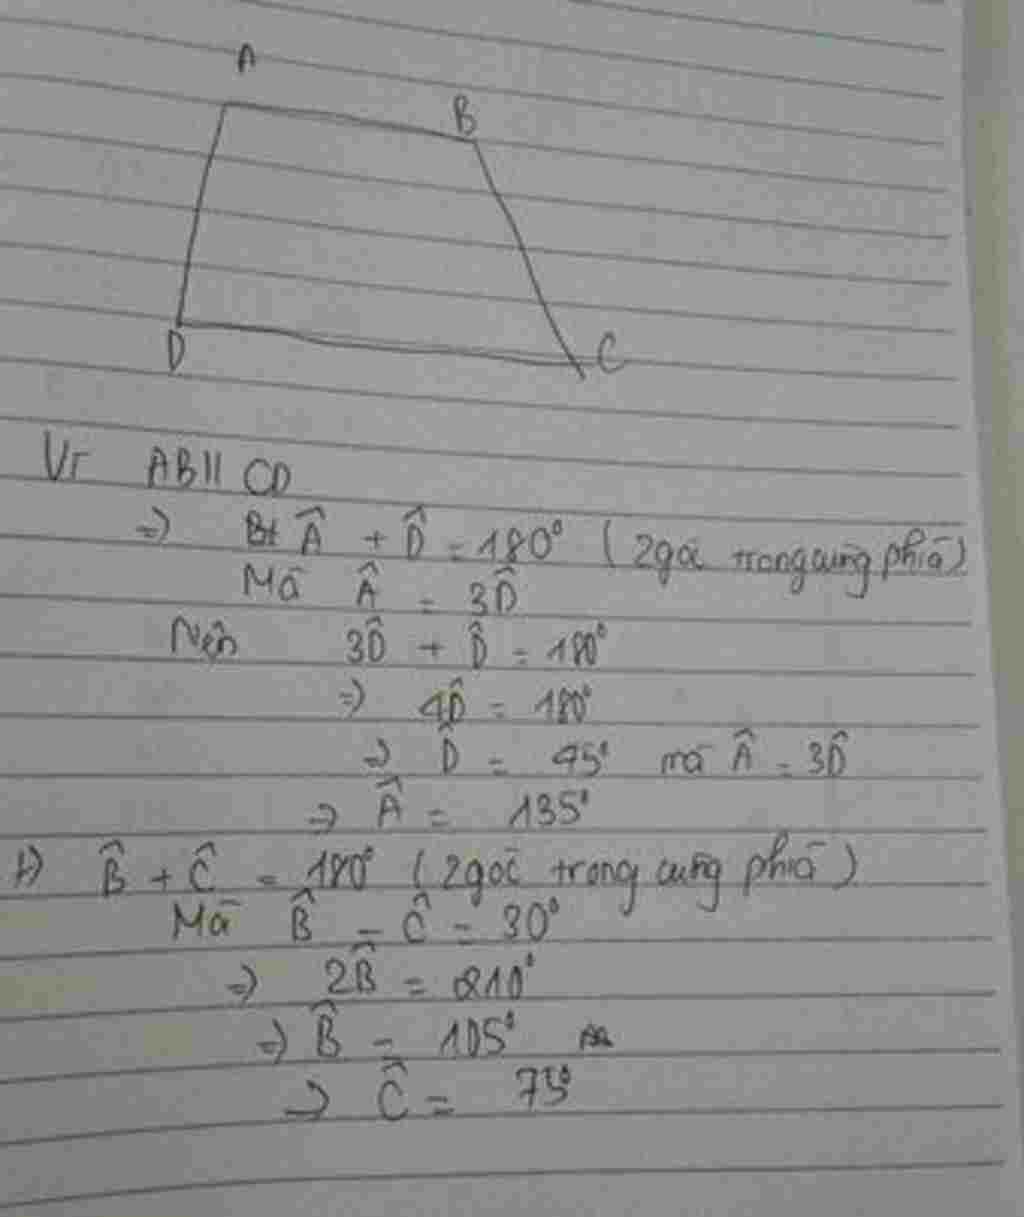 A
B
D
C
Vì AB // CD
=> Â + D̂ = 180° (2 góc trong cùng phía)
Mà Â = 3D̂
Nên 3D̂ + D̂ = 180°
=> 4D̂ = 180°
=> D̂ = 45° mà Â = 3D̂
=> Â = 135°
b) B̂ + Ĉ = 180° (2 góc trong cùng phía)
Mà B̂ - Ĉ = 30°
=> 2B̂ = 210°
=> B̂ = 105°
=> Ĉ = 75°